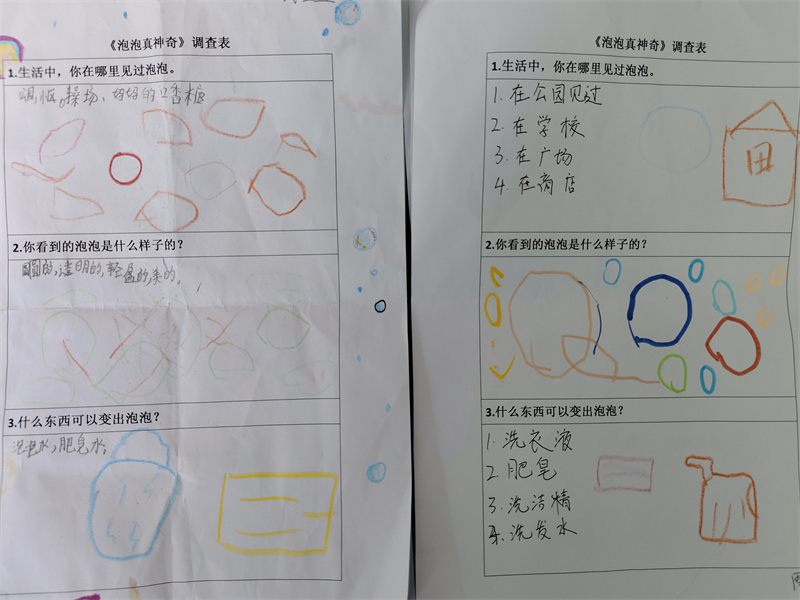 《泡泡真神奇》调查表
1.生活中，你在哪里见过泡泡。
操场、好好的口香糖
2.你看到的泡泡是什么样子的？
圆圆的，透明的，轻盈的，美的。
3.什么东西可以变出泡泡？
泡泡水，肥皂水，
《泡泡真神奇》调查表
1.生活中，你在哪里见过泡泡。
1. 在公园见过
2. 在学校
3. 在广场
4. 在商店
田
2.你看到的泡泡是什么样子的？
3.什么东西可以变出泡泡？
1. 洗衣液
2. 肥皂
3. 洗洁精
4. 洗发水